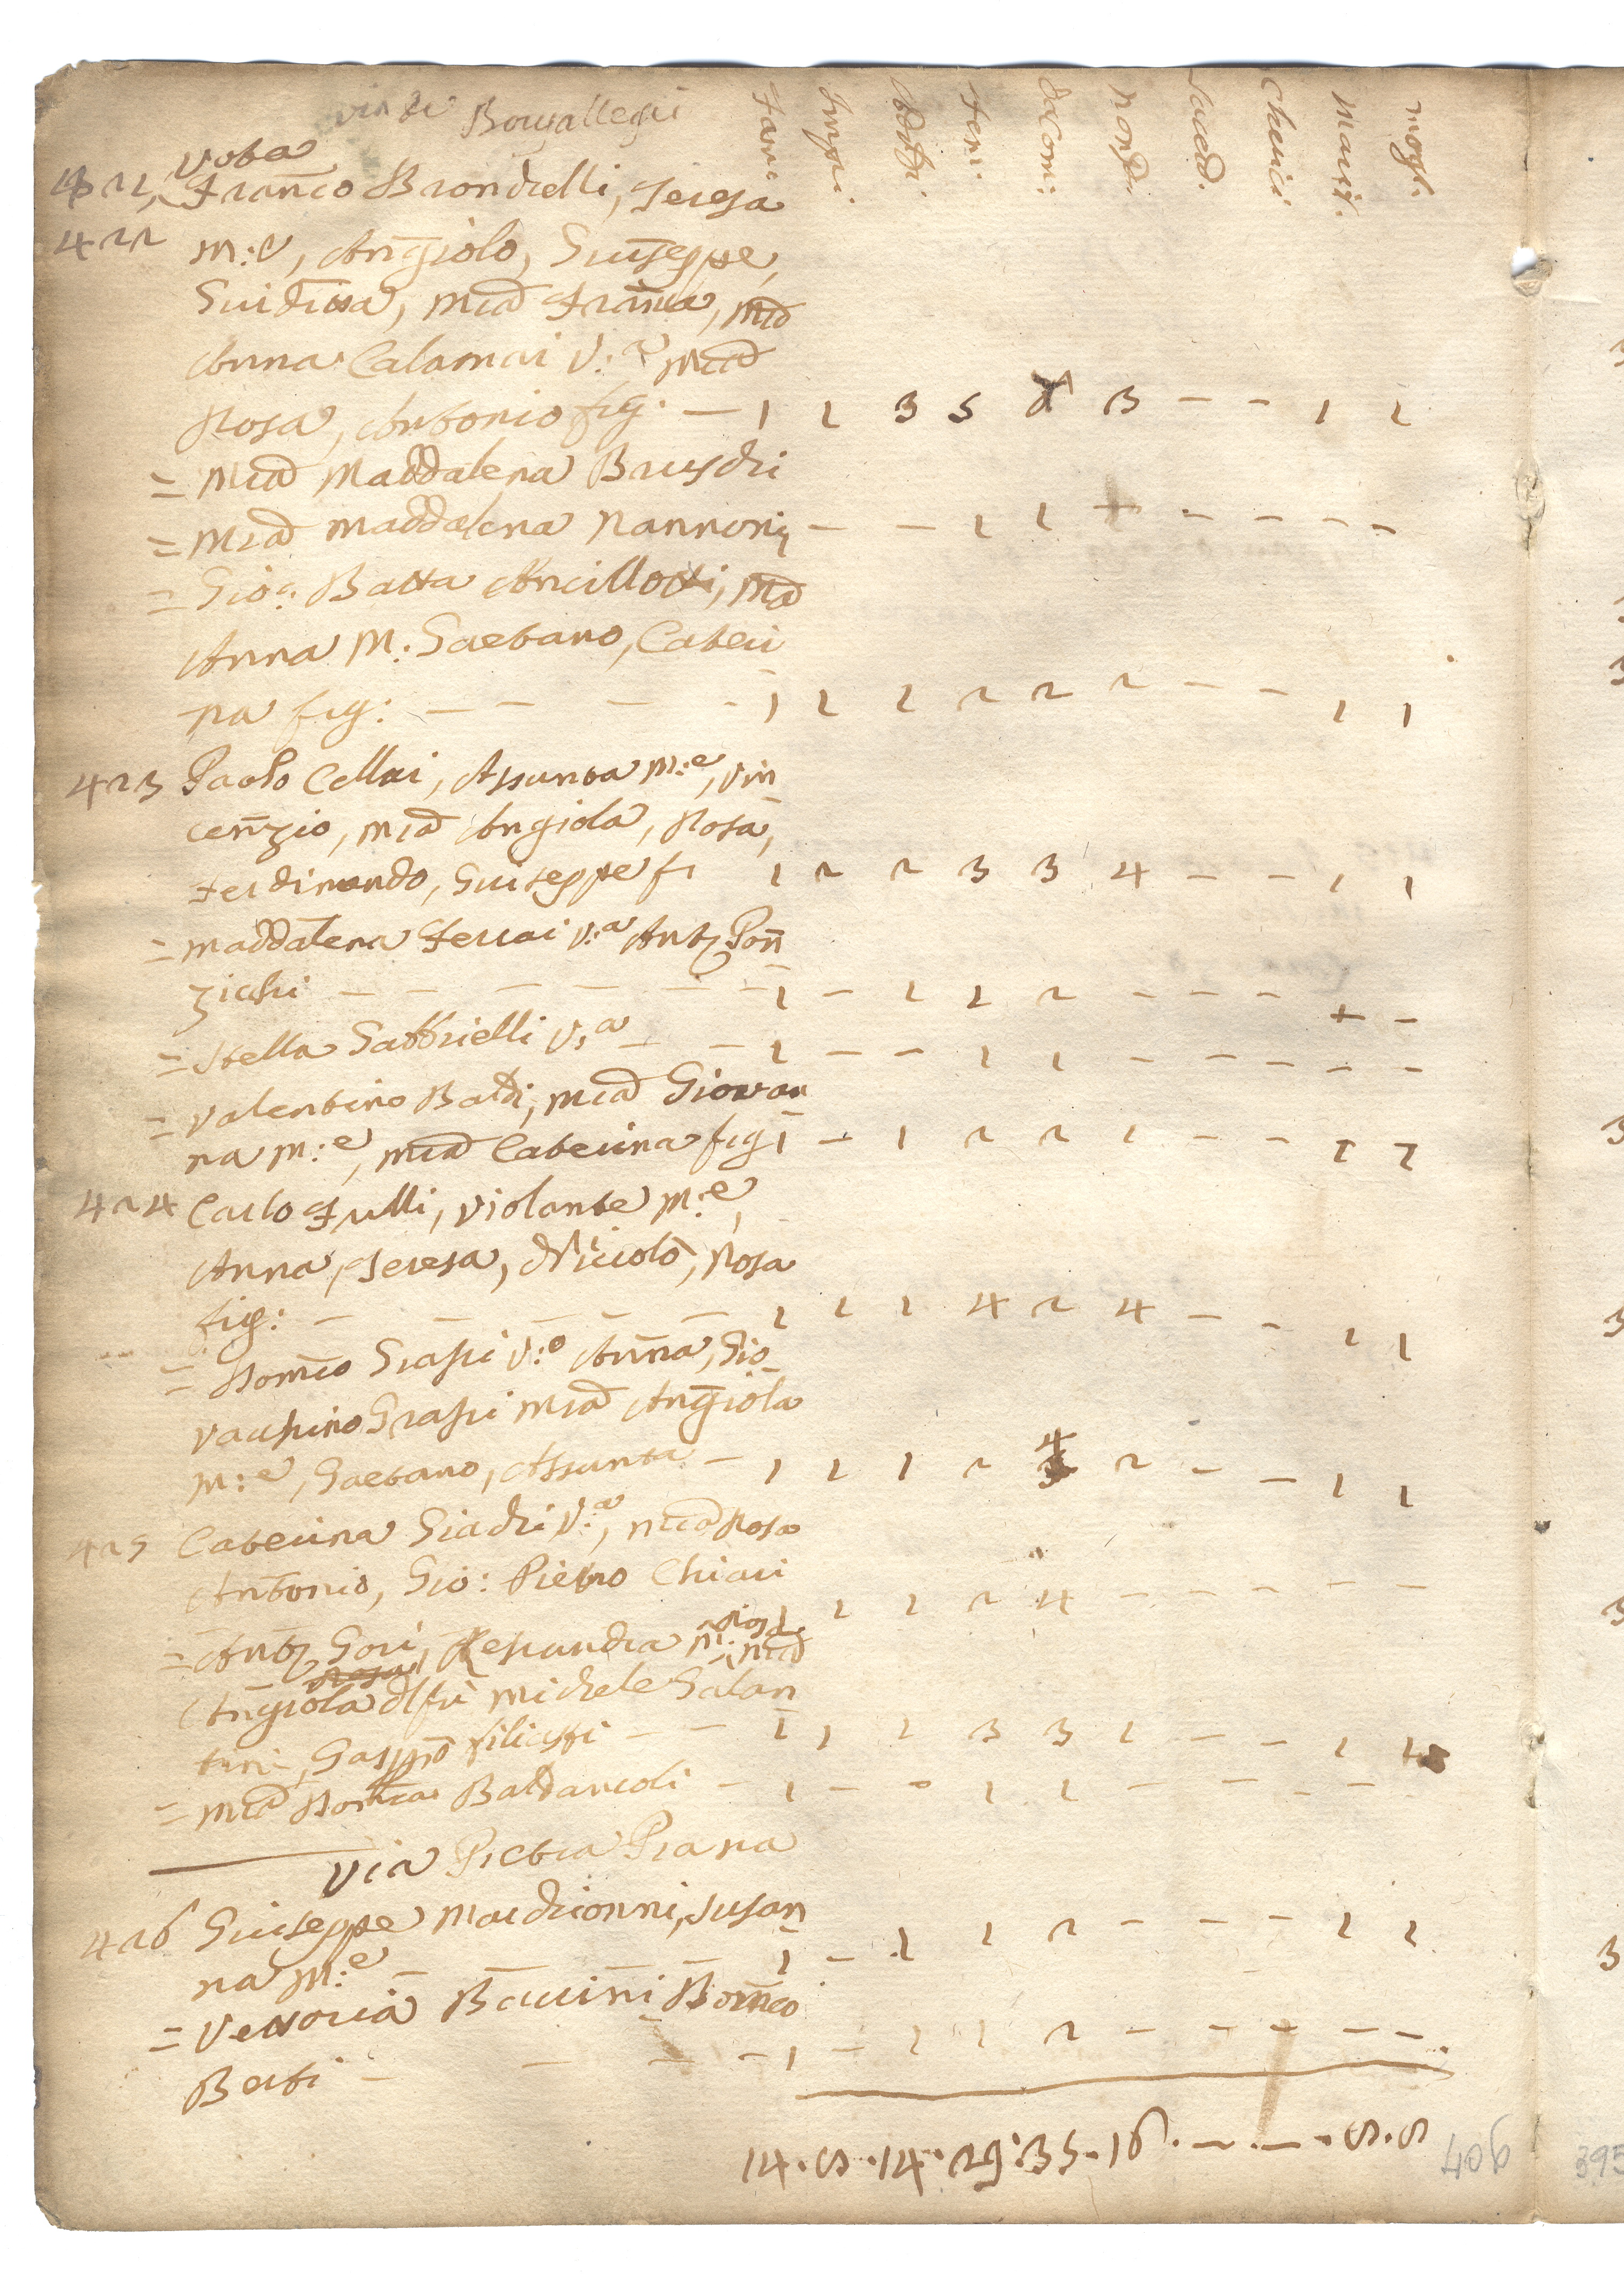 via di Borgallegri
Fam: Impu. Adulti Fem: da Com: non d. Saced. Cherici Marit. mogl.
421, Vota
422 Franco Brondelli, Teresa
m:e, Angiolo, Giuseppe,
Giuditta, Mia Franca, Mia
Anna Calamai V:a Mia
Rosa, Antonio fig. — 1 1 3 5 3 — — 1 1
= Mia Maddalena Bruschi
= Mia Maddalena Nannoni — — 1 1 + — — — —
= Gio: Batta Ancillotti, Ma
Anna M: Gaetano, Cateri
na fig: — — — - 1 1 1 2 2 2 — — 1 1
423 Paolo Cellai, Assunta m:e, Vin
cenzio, Mia Angiola, Rosa,
Ferdinando, Giuseppe fi 1 2 2 3 3 4 — — 1 1
= Maddalena Ferrai V:a Anto Pon
zichi — — — — — — 1 — 1 1 2 — — — + —
= Stella Gabbrielli V:a — — 1 — — 1 1 — — — — —
= Valentino Baldi, Mia Giovan
na m:e, Mia Caterina fig 1 — 1 2 2 1 — — 1 1
424 Carlo Fulli, Violante m:e,
Anna, Teresa, Niccolò, Rosa
fig: — — — — — 1 1 1 4 2 4 — — 1 1
= Domco Grassi V:o Anna, Gio
vachino Grassi Mia Angiola
m:e, Gaetano, Assunta — 1 1 1 2 4 2 — — 1 1
425 Caterina Giachi V:a, Mia Rosa
Antonio, Gio: Pietro Chiari
1 1 1 2 4 — — — — —
= Anto Gori, Alessandra m: Rosa, Mia
Angiola Rosa di fu Michele Galan
tini, Gasppo Filicchi — — 1 1 1 3 3 1 — — 1 1
= Mia Domca Baldancoli — 1 — — 1 1 — — — —
Via Pietra Piana
426 Giuseppe Marchionni, Susan
na m:e — — — 1 — 1 1 2 — — — 1 1
= Vettoria Baccini Domco
Berti — — — — 1 — 1 1 2 — — — — —
14 . 8 . 14 . 29 : 35 . 16 . — . — . 8 . 8
406
395